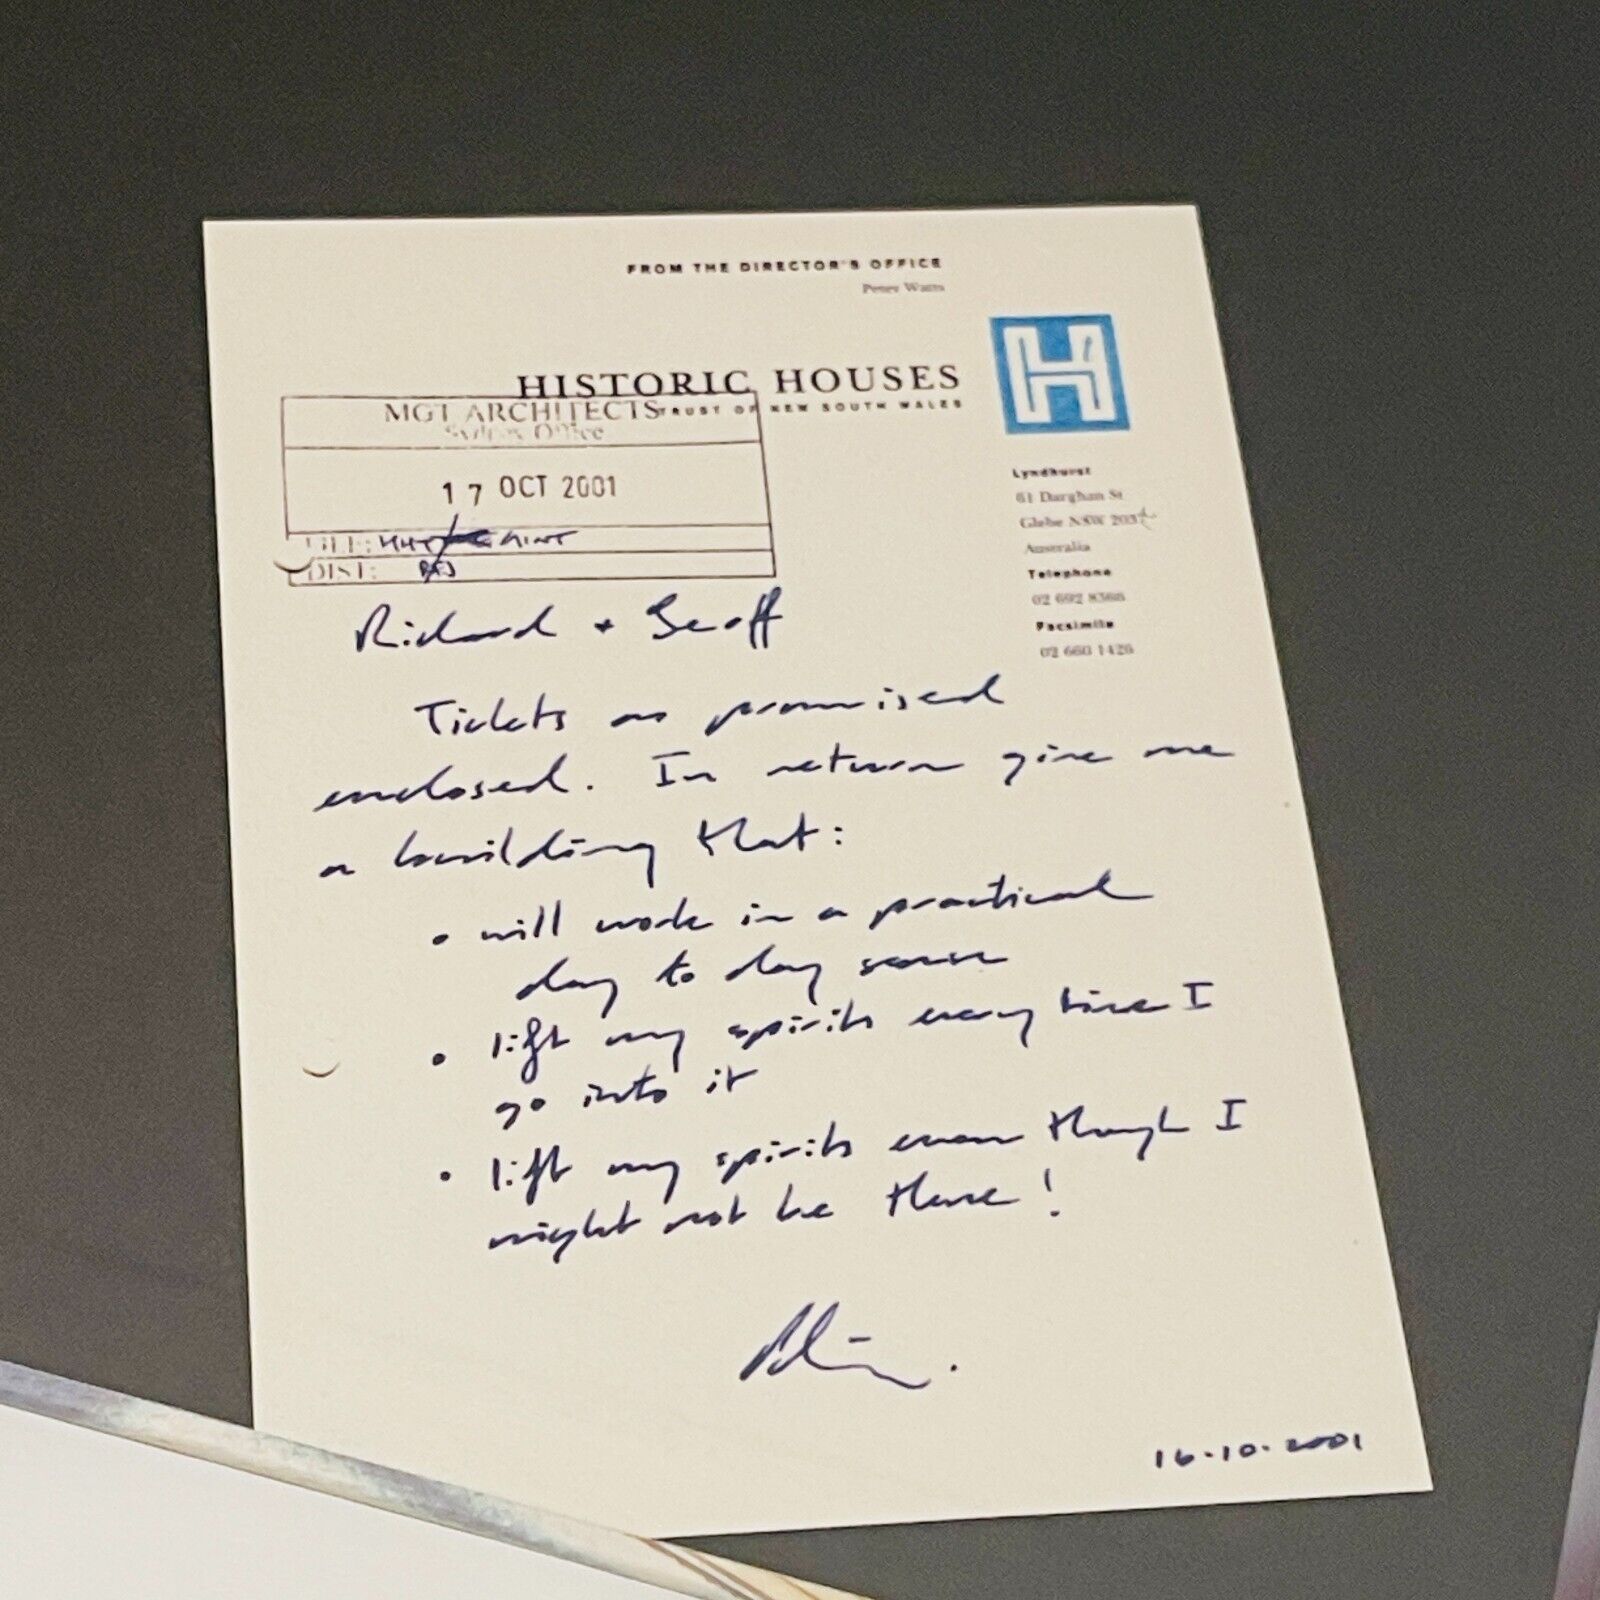 FROM THE DIRECTOR'S OFFICE
Peter Watts
HISTORIC HOUSES
TRUST OF NEW SOUTH WALES
H
MGT ARCHITECTS
Sydney Office
17 OCT 2001
FILE: HHT MINT
DIST:
Lyndhurst
61 Darghan St
Glebe NSW 2037
Australia
Telephone
02 692 8366
Facsimile
02 660 1426
Richard + Geoff
Tickets as promised
enclosed. In return give me
a building that:
• will work in a practical
day to day sense
• lift my spirits every time I
go into it
• lift my spirits even though I
might not be there!
16.10.2001